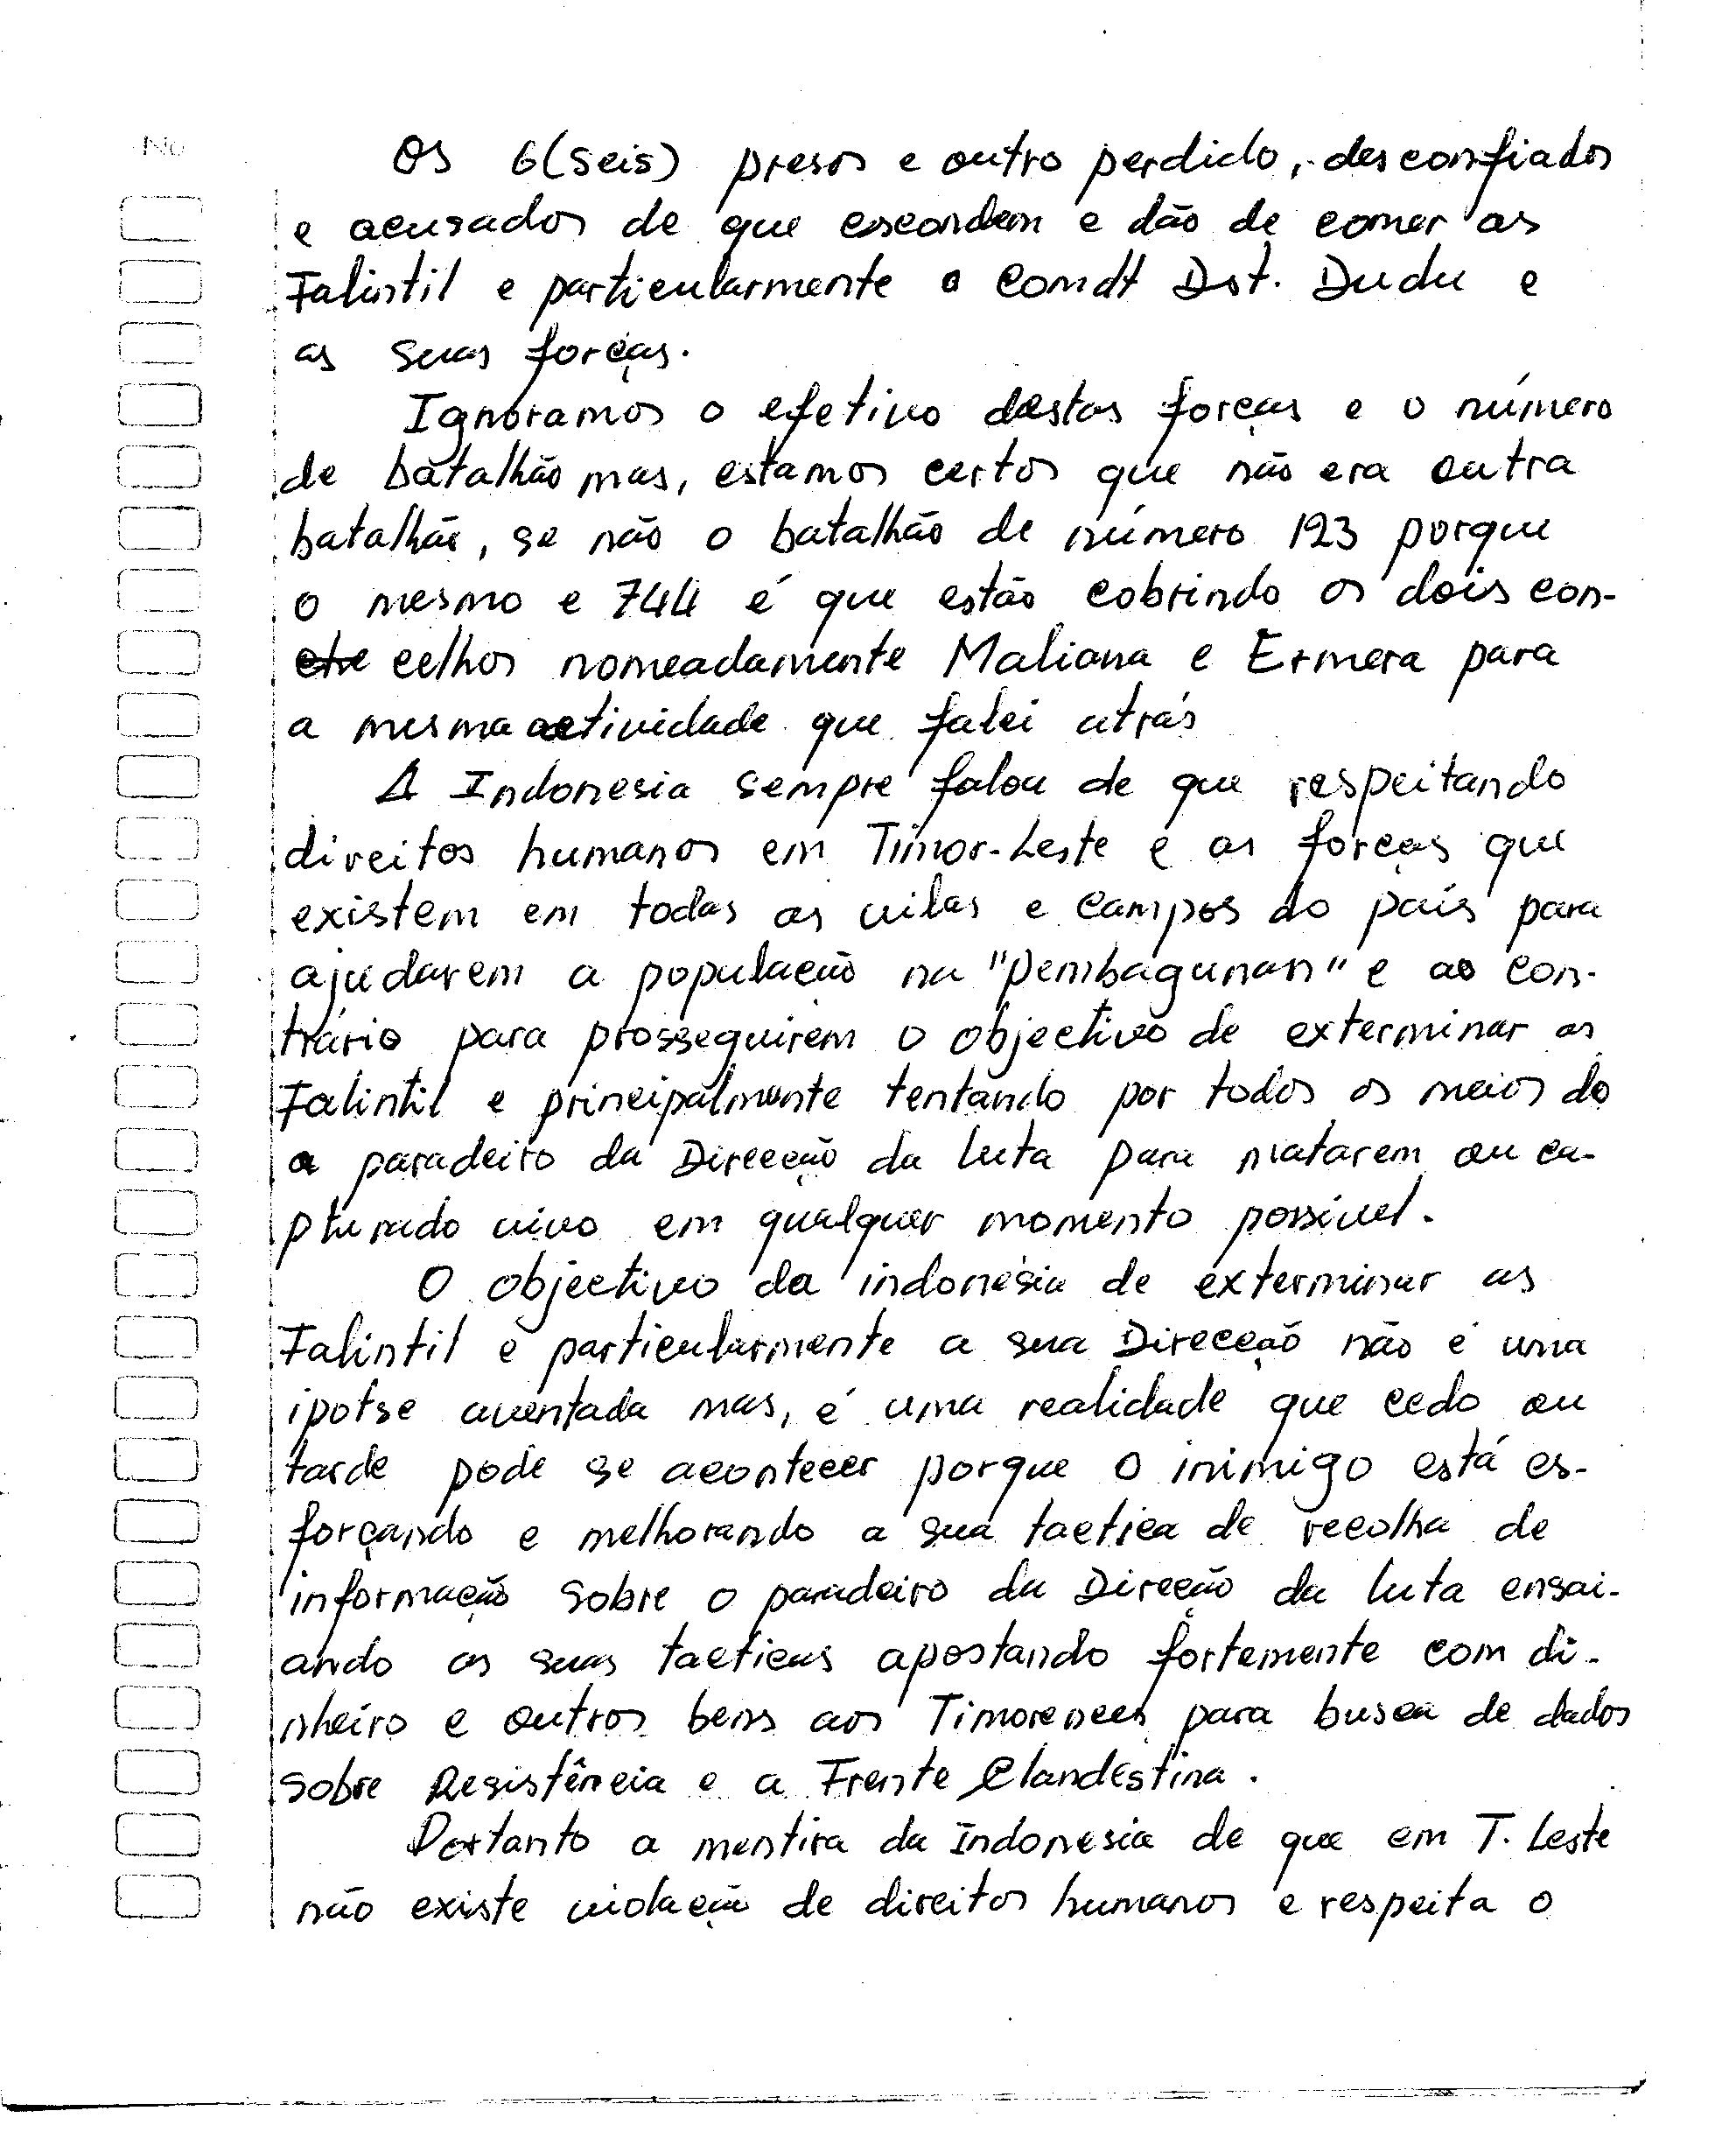 No
Os 6(seis) presos e outro perdido, desconfiados
e acusados de que escondem e dão de comer as
Falintil e particularmente o Comdt Dst. Dudu e
as suas forças.
Ignoramos o efetivo destas forças e o número
de batalhão mas, estamos certos que não era outra
batalhão, se não o batalhão de número 123 porque
o mesmo e 744 é que estão cobrindo os dois con-
celhos nomeadamente Maliana e Ermera para
a mesma actividade que falei atrás
A Indonesia sempre falou de que respeitando
direitos humanos em Timor-Leste e as forças que
existem em todas as vilas e campos do país para
ajudarem a população na "pembagunan" e ao con-
trário para prosseguirem o objectivo de exterminar as
Falintil e principalmente tentando por todos os meios do
a paradeiro da Direcção da luta para matarem ou ca-
pturado vivo em qualquer momento possivel.
O objectivo da indonésia de exterminar as
Falintil e particularmente a sua Direcção não é uma
ipotse aventada mas, é uma realidade que cedo ou
tarde pode se acontecer porque o inimigo está es-
forçando e melhorando a sua tactica de recolha de
informação sobre o paradeiro da Direção da luta ensai-
ando as suas tacticas apostando fortemente com di-
nheiro e outros bens aos Timorenses para busca de dados
sobre Resistência e a Frente Clandestina.
Portanto a mentira da Indonesia de que em T. Leste
não existe violação de direitos humanos e respeita o